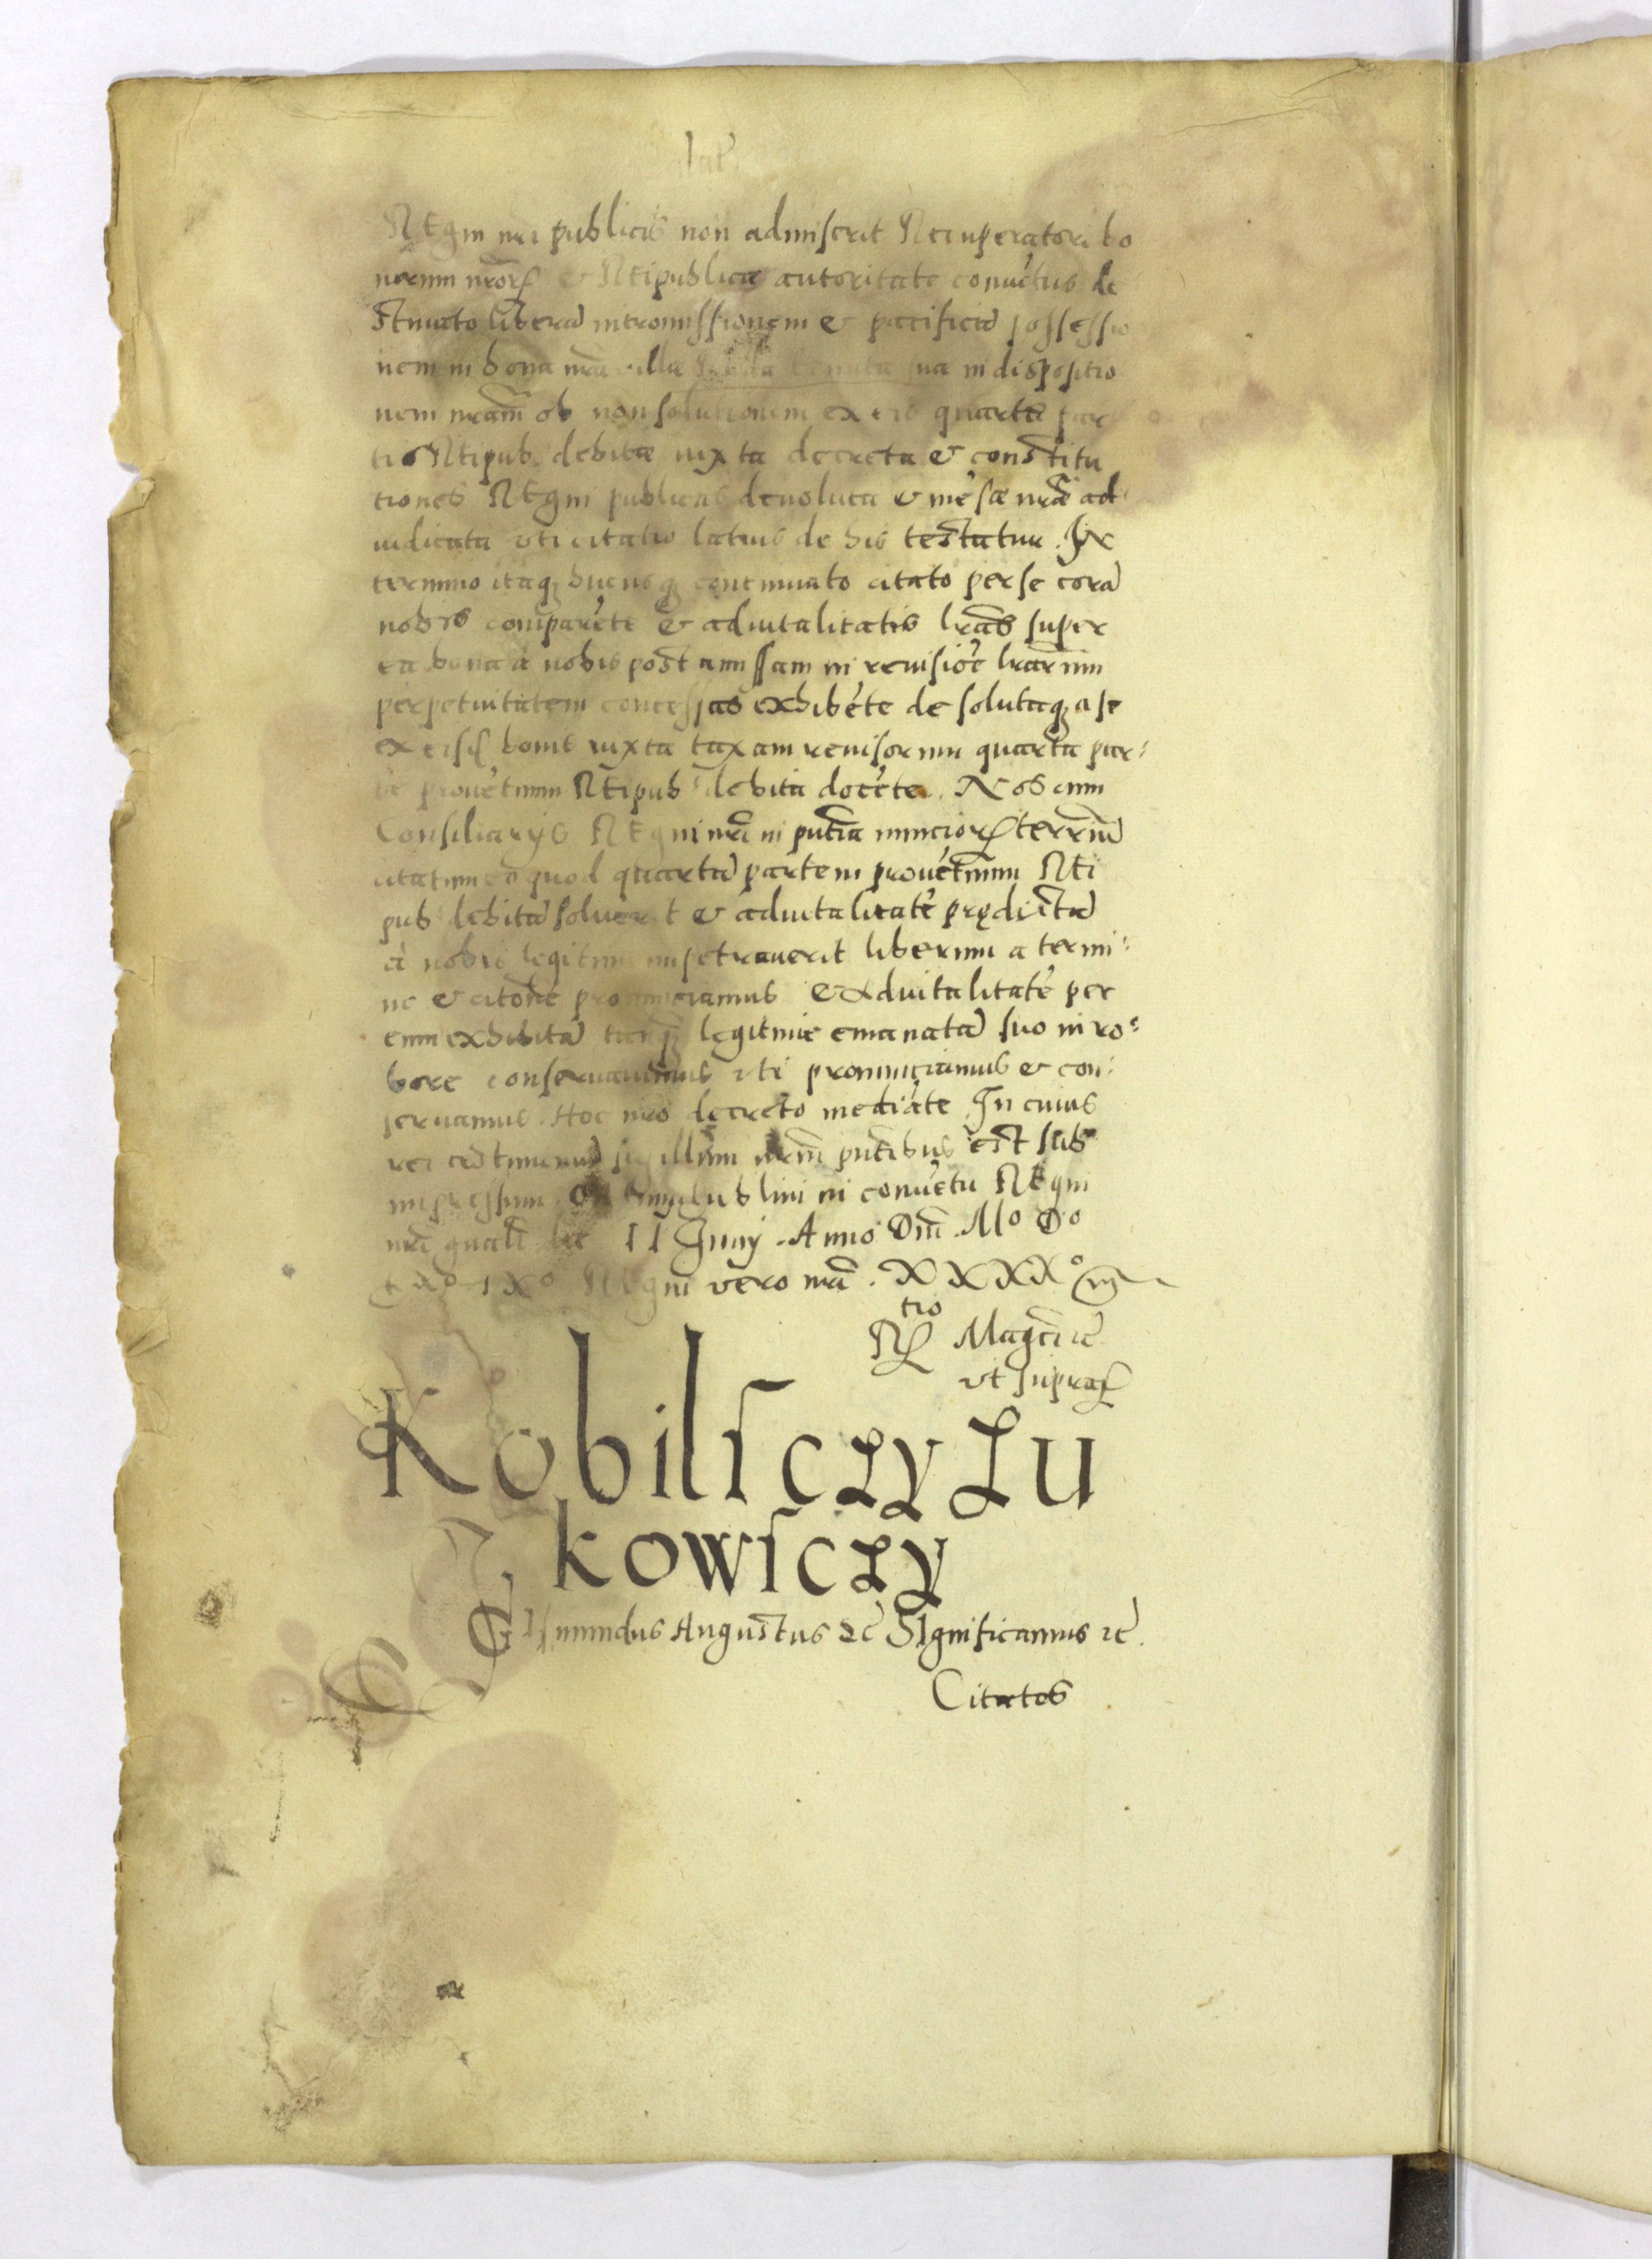 REgni nri publicis non admiserit Recuperatori bo
norum nrorũ & REipublicæ autoritate conuẽtus de
stinato liberã intromissionem & pacificã possessio
nem in bona nrã villa sua in dispositio
nem nram̃ ob non solutionem ex eis quartæ par
tis REipub. debitæ iuxta decreta & constitu
tiones REgni publicas deuoluta & mẽsæ nrãe ad
iudicata vti citatio latius de his testatur. In
termino itaq hucusq continuato citato per se corã
nobis comparẽte & aduitalitatis lrãs super
ea bona à nobis post amissam in reuisiõe lrarum
perpetuitatem concessas exhibẽte de solutaq a se
ex eisd bonis iuxta taxam reuisorum quarta par:
te prouẽtuum REipub: debita docẽte. Nos cum
Consiliarijs REgni nri in pñtia nuncior terriũ
citatum eo quod quartã partem prouẽtuum REi
pub: debitã soluerit & aduitalitatẽ prędictã
à nobis legitime impetrauerit liberum a termi:
no & citõne pronunciamus & aduitalitatẽ per
eum exhibitã tanq legitime emanatã suo in ro:
bore conseruauimus vti pronunciamus & con:
seruamus. Hoc nro decreto mediãte In cuius
rei testimoniũ sigillum nrm̃ pñtibus est sub
impressum. Lublini in conuẽtu REgni
nri gnali die II Junij. Anno Dñi. Mo Do
LXo IXo REgni vero nri. XXXXo
Rtio Magcice
vt supra
Kobilsczy Lu
kowsczy
SIgismundus Augustus &c SIgnificamus &c.
Citatos